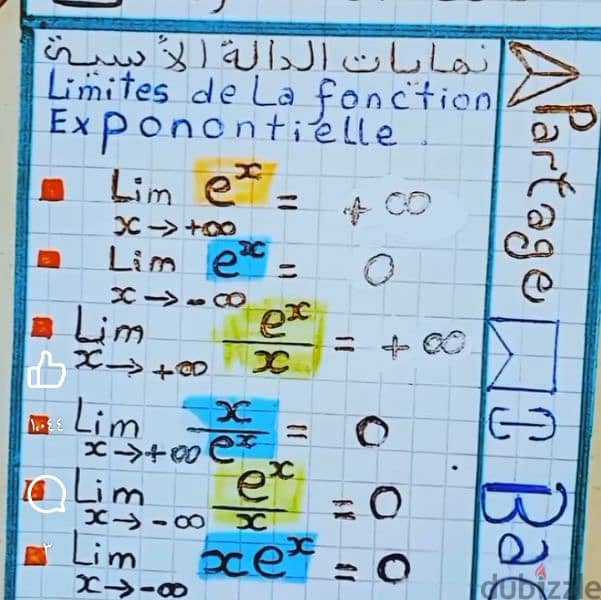 نهايات الدالة الأسية
Limites de La fonction
Exponontielle.
Lim e^x = +∞
x → +∞
Lim e^x = 0
x → -∞
Lim e^x/x = +∞
x → +∞
Lim x/e^x = 0
x → +∞
Lim e^x/x = 0
x → -∞
Lim xe^x = 0
x → -∞
Partage
Bac
١٠٤٤
٣
dubizzle